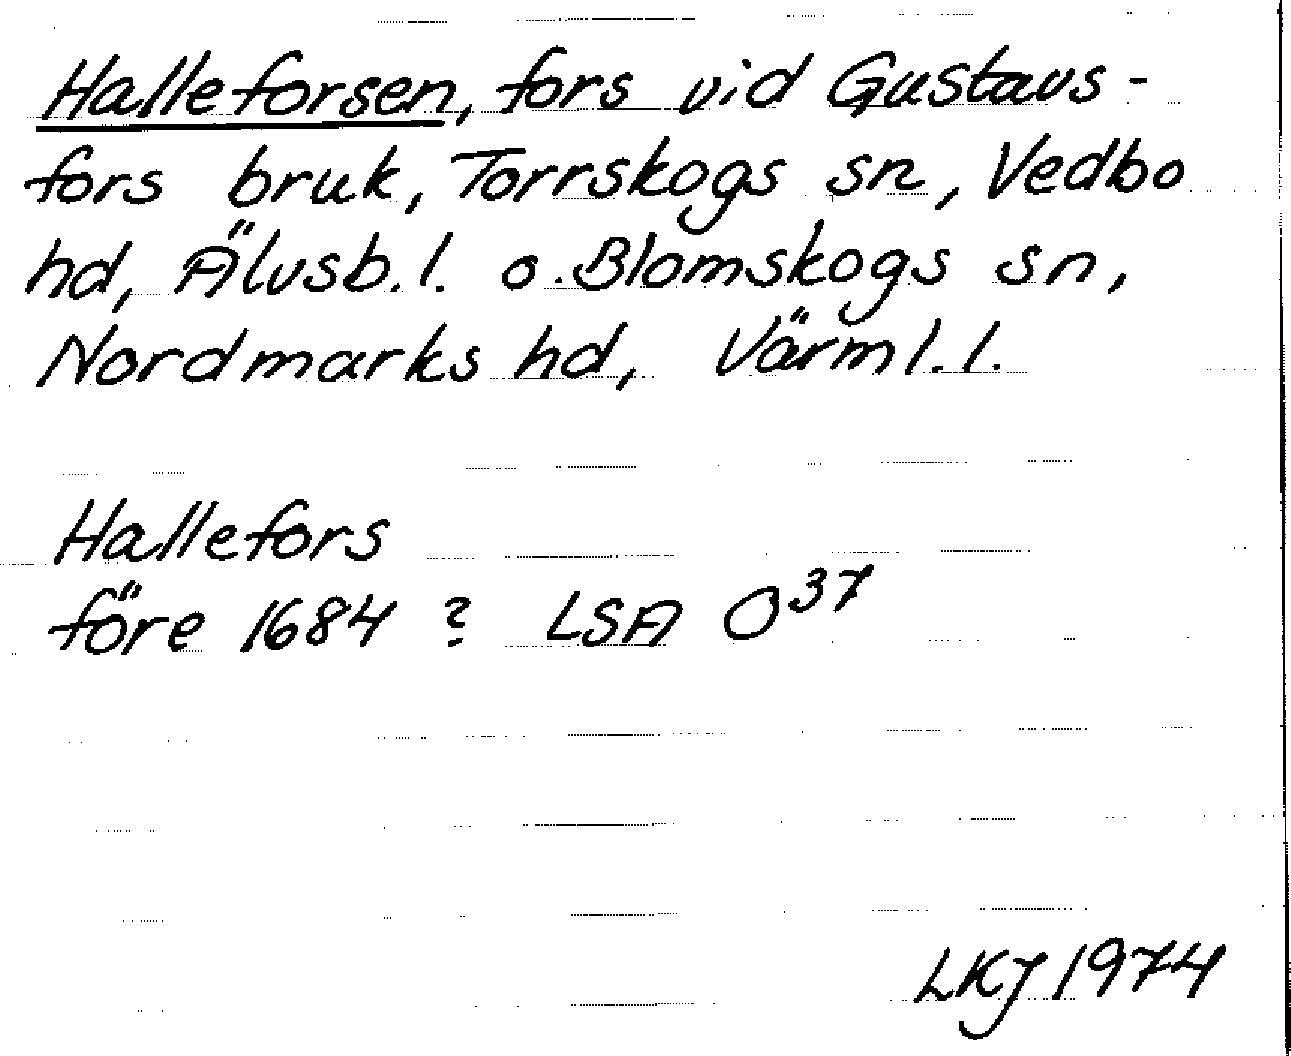 Halleforsen, fors vid Gustavs-
fors bruk, Torrskogs sn, Vedbo
hd, Älvsb.l. o. Blomskogs sn,
Nordmarks hd, Värml.l.
Hallefors
före 1684 ? LSA O37
LKJ 1974